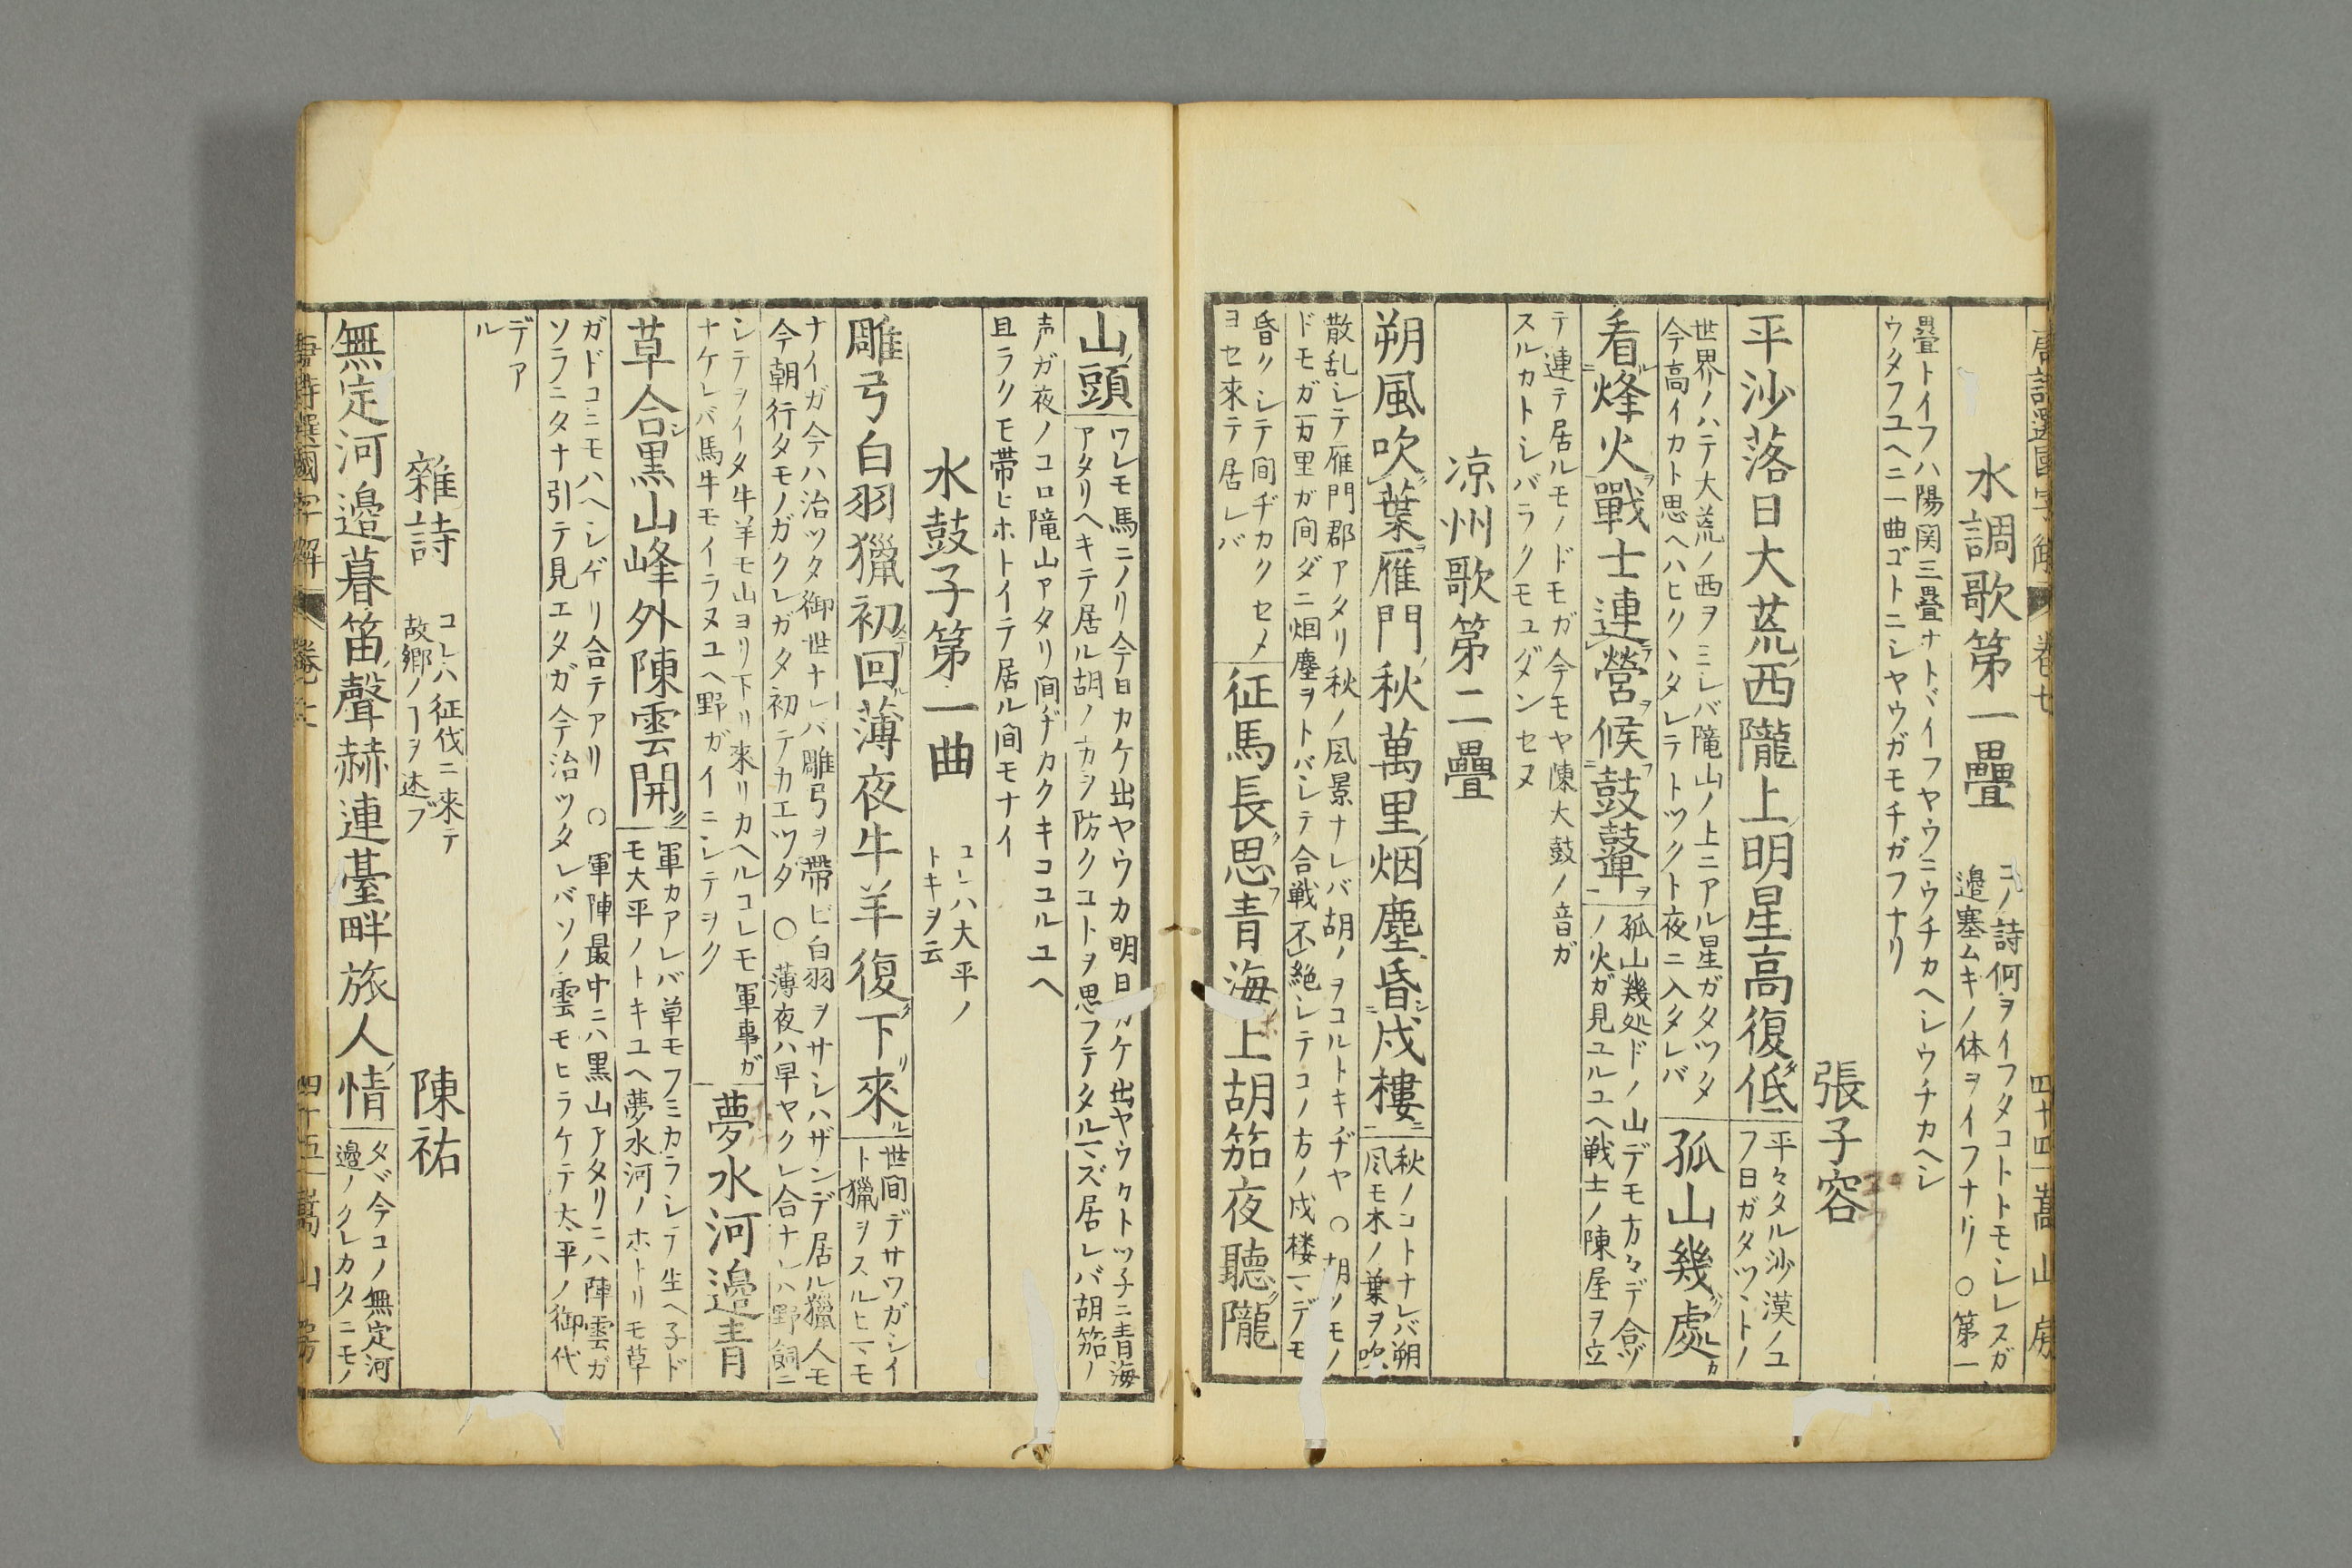 唐詩選國字解 卷七 四十四 嵩山房
水調歌第一疊 コノ詩何ヲイフタコトトモシレスガ
邉塞ムキノ体ヲイフナリ ○第一
畳トイフハ陽関三畳ナトヾイフヤウニウチカヘシウチカヘシ
ウタフユヘニ一曲ゴトニシヤウガモチガフナリ
張子容
平沙落日大荒西隴上明星高復低 平々タル沙漠ノユ
フ日ガタツヽトノ
世界ノハテ大荒ノ西ヲミレバ隴山ノ上ニアル星ガタツタ
今高イカト思ヘハヒクヽタレテトツクト夜ニ入タレバ 孤山幾處
看烽火戰士連營候鼓鼙 孤山幾処ドノ山デモ方々デ合ヅ
ノ火ガ見ユルユヘ戦士ノ陳屋ヲ立
テ連テ居ルモノドモガ今モヤ陳大鼓ノ音ガ
スルカトシバラクモユダンセヌ
凉州歌第二疊
朔風吹葉雁門秋萬里烟塵昏戍樓 秋ノコトナレバ朔
風モ木ノ葉ヲ吹
散乱シテ雁門郡アタリ秋ノ風景ナレバ胡ノヲコルトキヂヤ ○胡ノモノ
ドモガ万里ガ間ダニ烟塵ヲトバシテ合戦不絶シテコノ方ノ戍楼一デモ
昏クシテ間ヂカクセメ
ヨセ來テ居レバ 征馬長思青海上胡笳夜聽隴
山頭 ワレモ馬ニノリ今日カケ出ヤウカ明日カケ出ヤウクトツ子ニ青海
アタリヘキテ居ル胡ノ方ヲ防クコトヲ思フテタルマズ居レバ胡笳ノ
声ガ夜ノコロ隴山アタリ間ヂカクキコユルユヘ
且ラクモ帯ヒホトイテ居ル間モナイ
水鼓子第一曲 コレハ大平ノ
トキヲ云
雕弓白羽獵初回薄夜牛羊復下來 世間デサワガシイ
ト獵ヲスルヒマモ
ナイガ今ハ治ツタ御世ナレバ雕弓ヲ帶ビ白羽ヲサシハザンデ居ル獵人モ
今朝行タモノガクレガタ初テカエツタ ○薄夜ハ早ヤクレ合ナレハ野飼ニ
シテヲイタ牛羊モ山ヨリ下リ來リカヘルコレモ軍事ガ
ナケレバ馬牛モイラヌユヘ野ガイニシテヲク 夢水河邉青
草合黒山峰外陳雲開 軍カアレバ草モフミカラシテ生ヘ子ド
モ大平ノトキユヘ夢水河ノホトリモ草
ガドコニモハヘシゲリ合テアリ ○軍陣最中ニハ黒山アタリニハ陣雲ガ
ソラニタナ引テ見エタガ今治ツタレバソノ雲モヒラケテ太平ノ御代
デア
ル
雜詩 コレハ征伐ニ來テ
故郷ノヿヲ述ブ 陳祐
無定河邉暮笛聲赫連臺畔旅人情 タヾ今コノ無定河
邉ノクレカタニモノ
唐詩選國字解 卷七 四十五 嵩山房